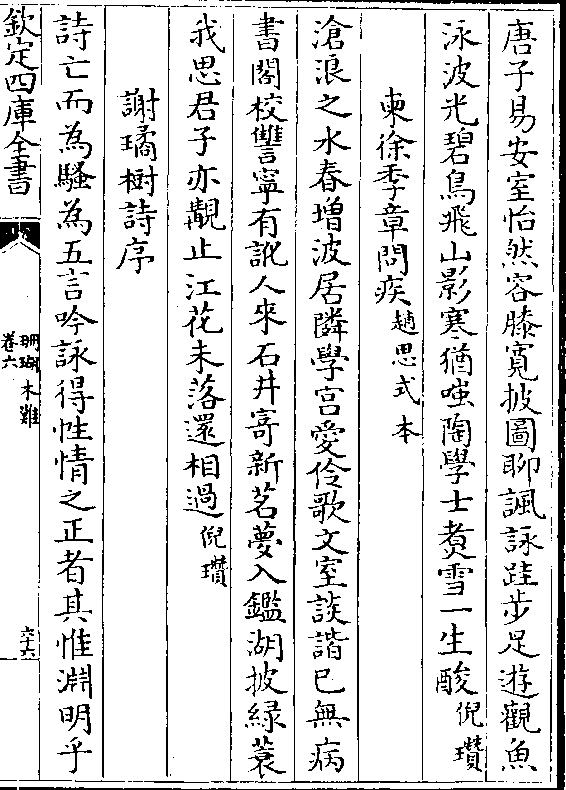 唐子易安室怡然容膝寛披圖聊諷詠跬步足遊觀魚
泳波光碧鳥飛山影寒猶嗤陶學士煑雪一生酸倪瓚
柬徐季章問疾趙思式本
滄浪之水春増波居隣學宫愛伶歌文室談諧已無病
書閣校讐寧有訛人來石井寄新茗夢入鑑湖披緑蓑
我思君子亦覯止江花未落還相過倪瓚
謝璚樹詩序
詩亡而為騷為五言吟詠得性情之正者其惟淵明乎
欽定四庫全書
珊瑚木難
卷六
六十六